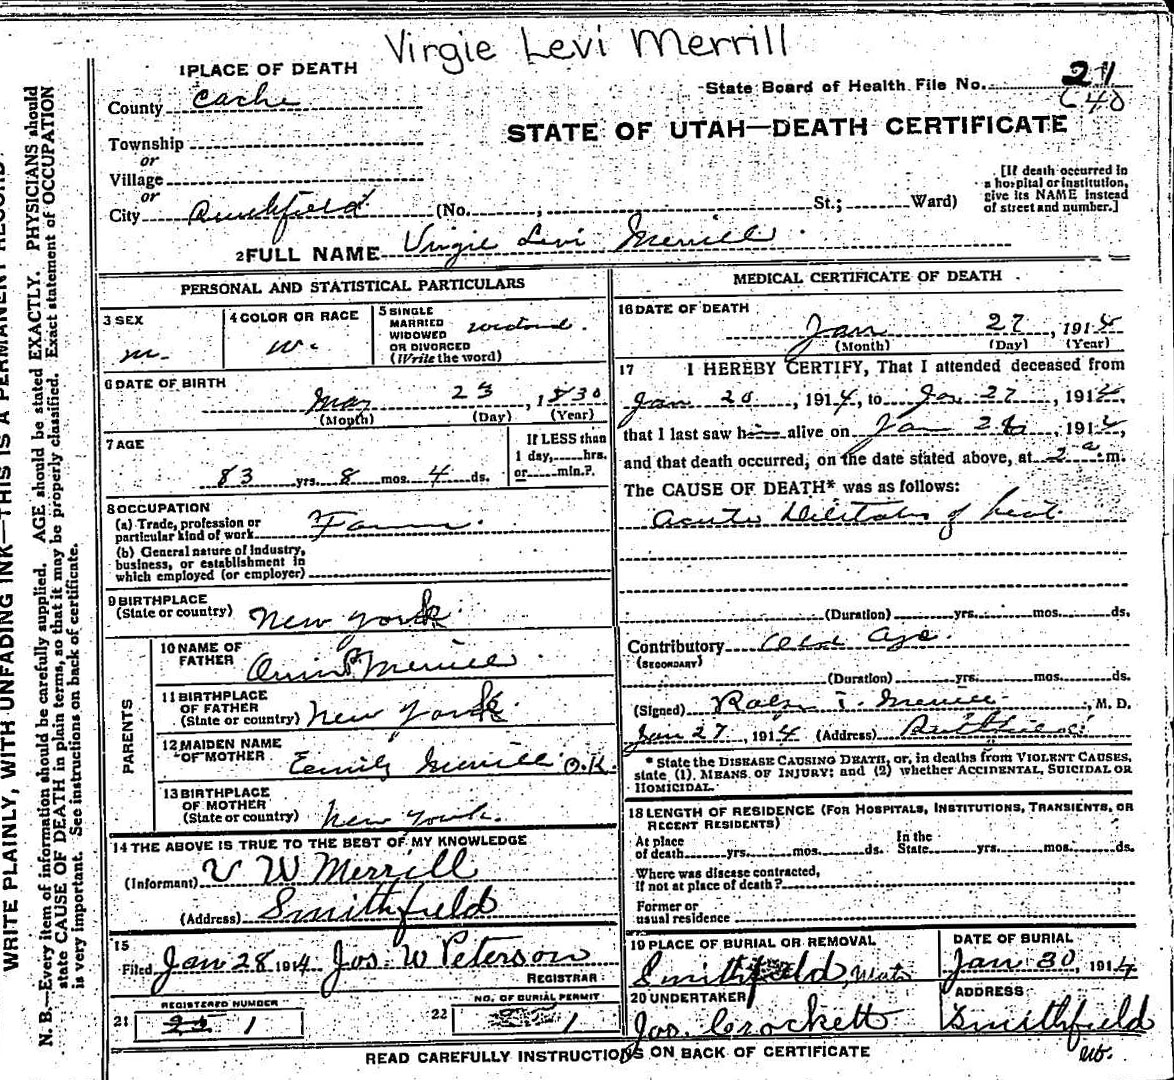 Virgie Levi Merrill
1 PLACE OF DEATH
State Board of Health File No. 21
640
County Cache
STATE OF UTAH—DEATH CERTIFICATE
Township
or
Village
or
City Smithfield (No. ; St.; Ward)
[If death occurred in
a hospital or institution,
give its NAME instead
of street and number.]
2 FULL NAME Virgie Levi Merrill
PERSONAL AND STATISTICAL PARTICULARS
3 SEX
m.
4 COLOR OR RACE
w.
5 SINGLE
MARRIED
WIDOWED
OR DIVORCED
(Write the word)
widowed.
6 DATE OF BIRTH
May 23, 1830
(Month) (Day) (Year)
7 AGE
83 yrs. 8 mos. 4 ds.
If LESS than
1 day, hrs.
or min.?
8 OCCUPATION
(a) Trade, profession or
particular kind of work Farmer.
(b) General nature of industry,
business, or establishment in
which employed (or employer)
9 BIRTHPLACE
(State or country) New York
PARENTS
10 NAME OF
FATHER Merrill
11 BIRTHPLACE
OF FATHER
(State or country) New York
12 MAIDEN NAME
OF MOTHER Emily Merrill O.K.
13 BIRTHPLACE
OF MOTHER
(State or country) New York.
14 THE ABOVE IS TRUE TO THE BEST OF MY KNOWLEDGE
(Informant) V W Merrill
(Address) Smithfield
15
Filed Jan 28 1914 Jos. W Peterson
REGISTRAR
REGISTERED NUMBER
21 1
NO. OF BURIAL PERMIT
22 1
MEDICAL CERTIFICATE OF DEATH
16 DATE OF DEATH
Jan 27, 1914
(Month) (Day) (Year)
17 I HEREBY CERTIFY, That I attended deceased from
Jan 20, 1914, to Jan 27, 1914,
that I last saw him alive on Jan 26, 1914,
and that death occurred, on the date stated above, at 2 a.m.
The CAUSE OF DEATH* was as follows:
Acute Dilitation of heart.
(Duration) yrs. mos. ds.
Contributory Old Age.
(SECONDARY)
(Duration) yrs. mos. ds.
(Signed) Ralph T. Merrill, M. D.
Jan 27, 1914 (Address) Smithfield
* State the DISEASE CAUSING DEATH, or, in deaths from VIOLENT CAUSES,
state (1) MEANS OF INJURY; and (2) whether ACCIDENTAL, SUICIDAL OR
HOMICIDAL.
18 LENGTH OF RESIDENCE (FOR HOSPITALS, INSTITUTIONS, TRANSIENTS, OR
RECENT RESIDENTS)
At place
of death yrs. mos. ds. In the
State yrs. mos. ds.
Where was disease contracted,
if not at place of death?
Former or
usual residence
19 PLACE OF BURIAL OR REMOVAL
Smithfield, Utah
DATE OF BURIAL
Jan 30, 1914
20 UNDERTAKER
Jos. Crockett
ADDRESS
Smithfield
READ CAREFULLY INSTRUCTIONS ON BACK OF CERTIFICATE
WRITE PLAINLY, WITH UNFADING INK—THIS IS A PERMANENT RECORD
N. B.—Every item of information should be carefully supplied. AGE should be stated EXACTLY. PHYSICIANS should
state CAUSE OF DEATH in plain terms, so that it may be properly classified. Exact statement of OCCUPATION
is very important. See instructions on back of certificate.